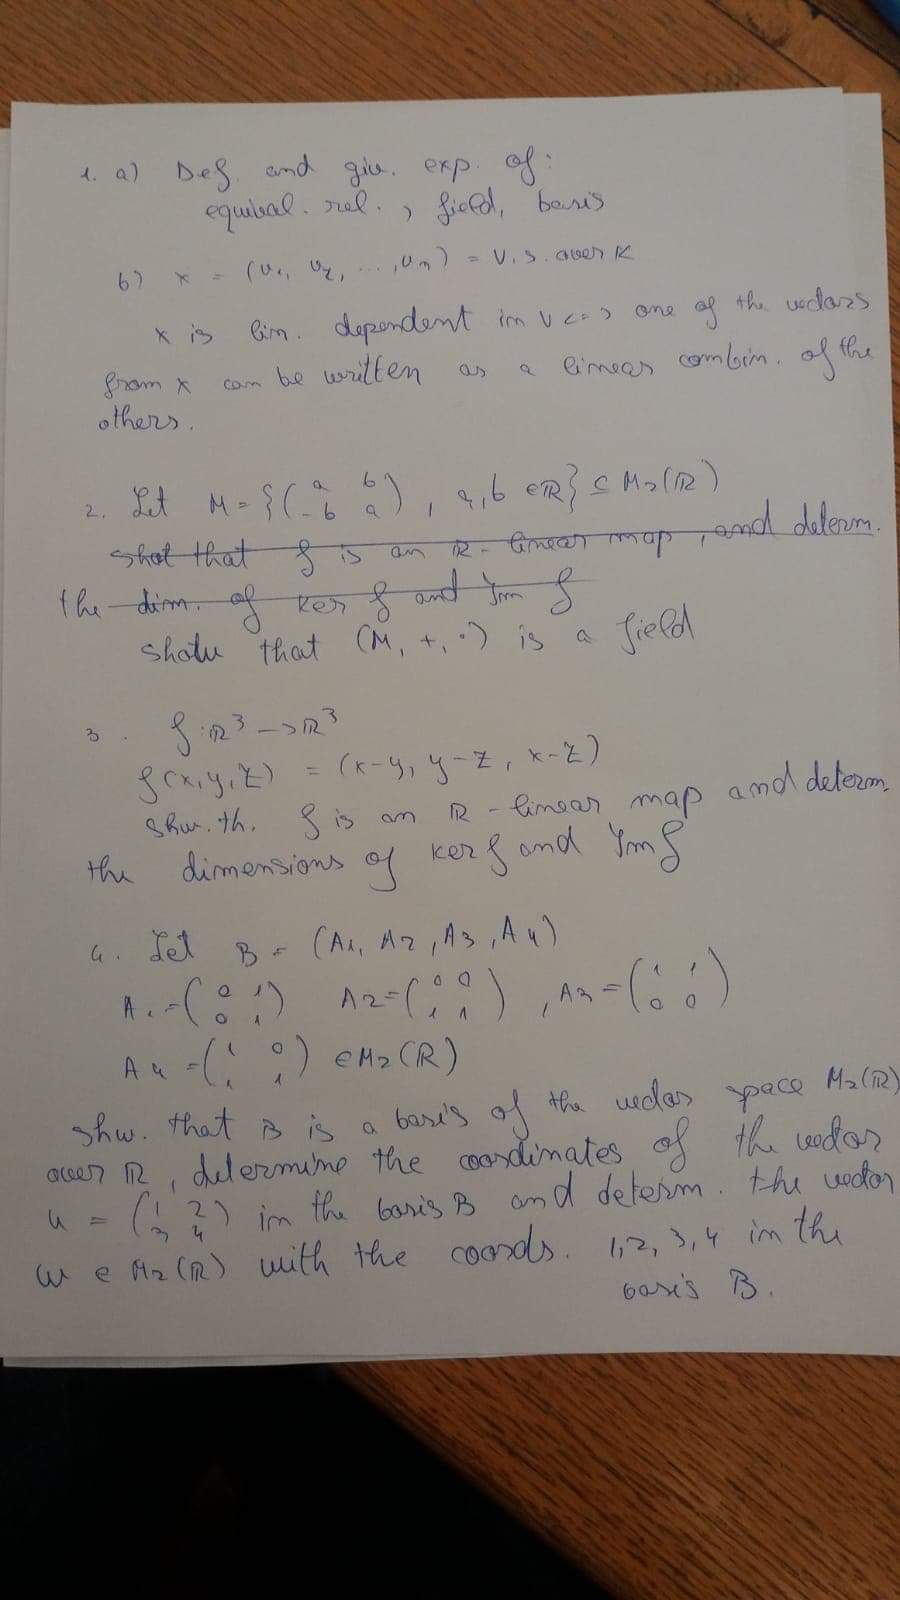 1. a) Def. and giv. exp. of:
equival. rel., field, basis
b) x = (v₁, v₂, ..., vₙ) = v.s. over K
x is lin. dependent in V <=> one of the vectors
from x can be written as a linear combin. of the
others.
2. Let M = {( a b -b a ), a,b ∈ ℝ} ⊆ M₂(ℝ)
Shot that f is an ℝ-linear map, and determ.
the dim. of Ker f and Im f
show that (M, +, ·) is a field
3. f: ℝ³ -> ℝ³
f(x,y,z) = (x-y, y-z, x-z)
Shw. th. f is an ℝ-linear map and determ.
the dimensions of ker f and Im f
4. Let B = (A₁, A₂, A₃, A₄)
A₁ = ( 0 1 0 1 ) A₂ = ( 0 0 1 1 ), A₃ = ( 1 1 0 0 )
A₄ = ( 1 0 1 1 ) ∈ M₂(ℝ)
shw. that B is a basis of the vector space M₂(ℝ)
over ℝ, determine the coordinates of the vector
u = ( 1 2 3 4 ) in the basis B and determ. the vector
w ∈ M₂(ℝ) with the coords. 1, 2, 3, 4 in the
basis B.